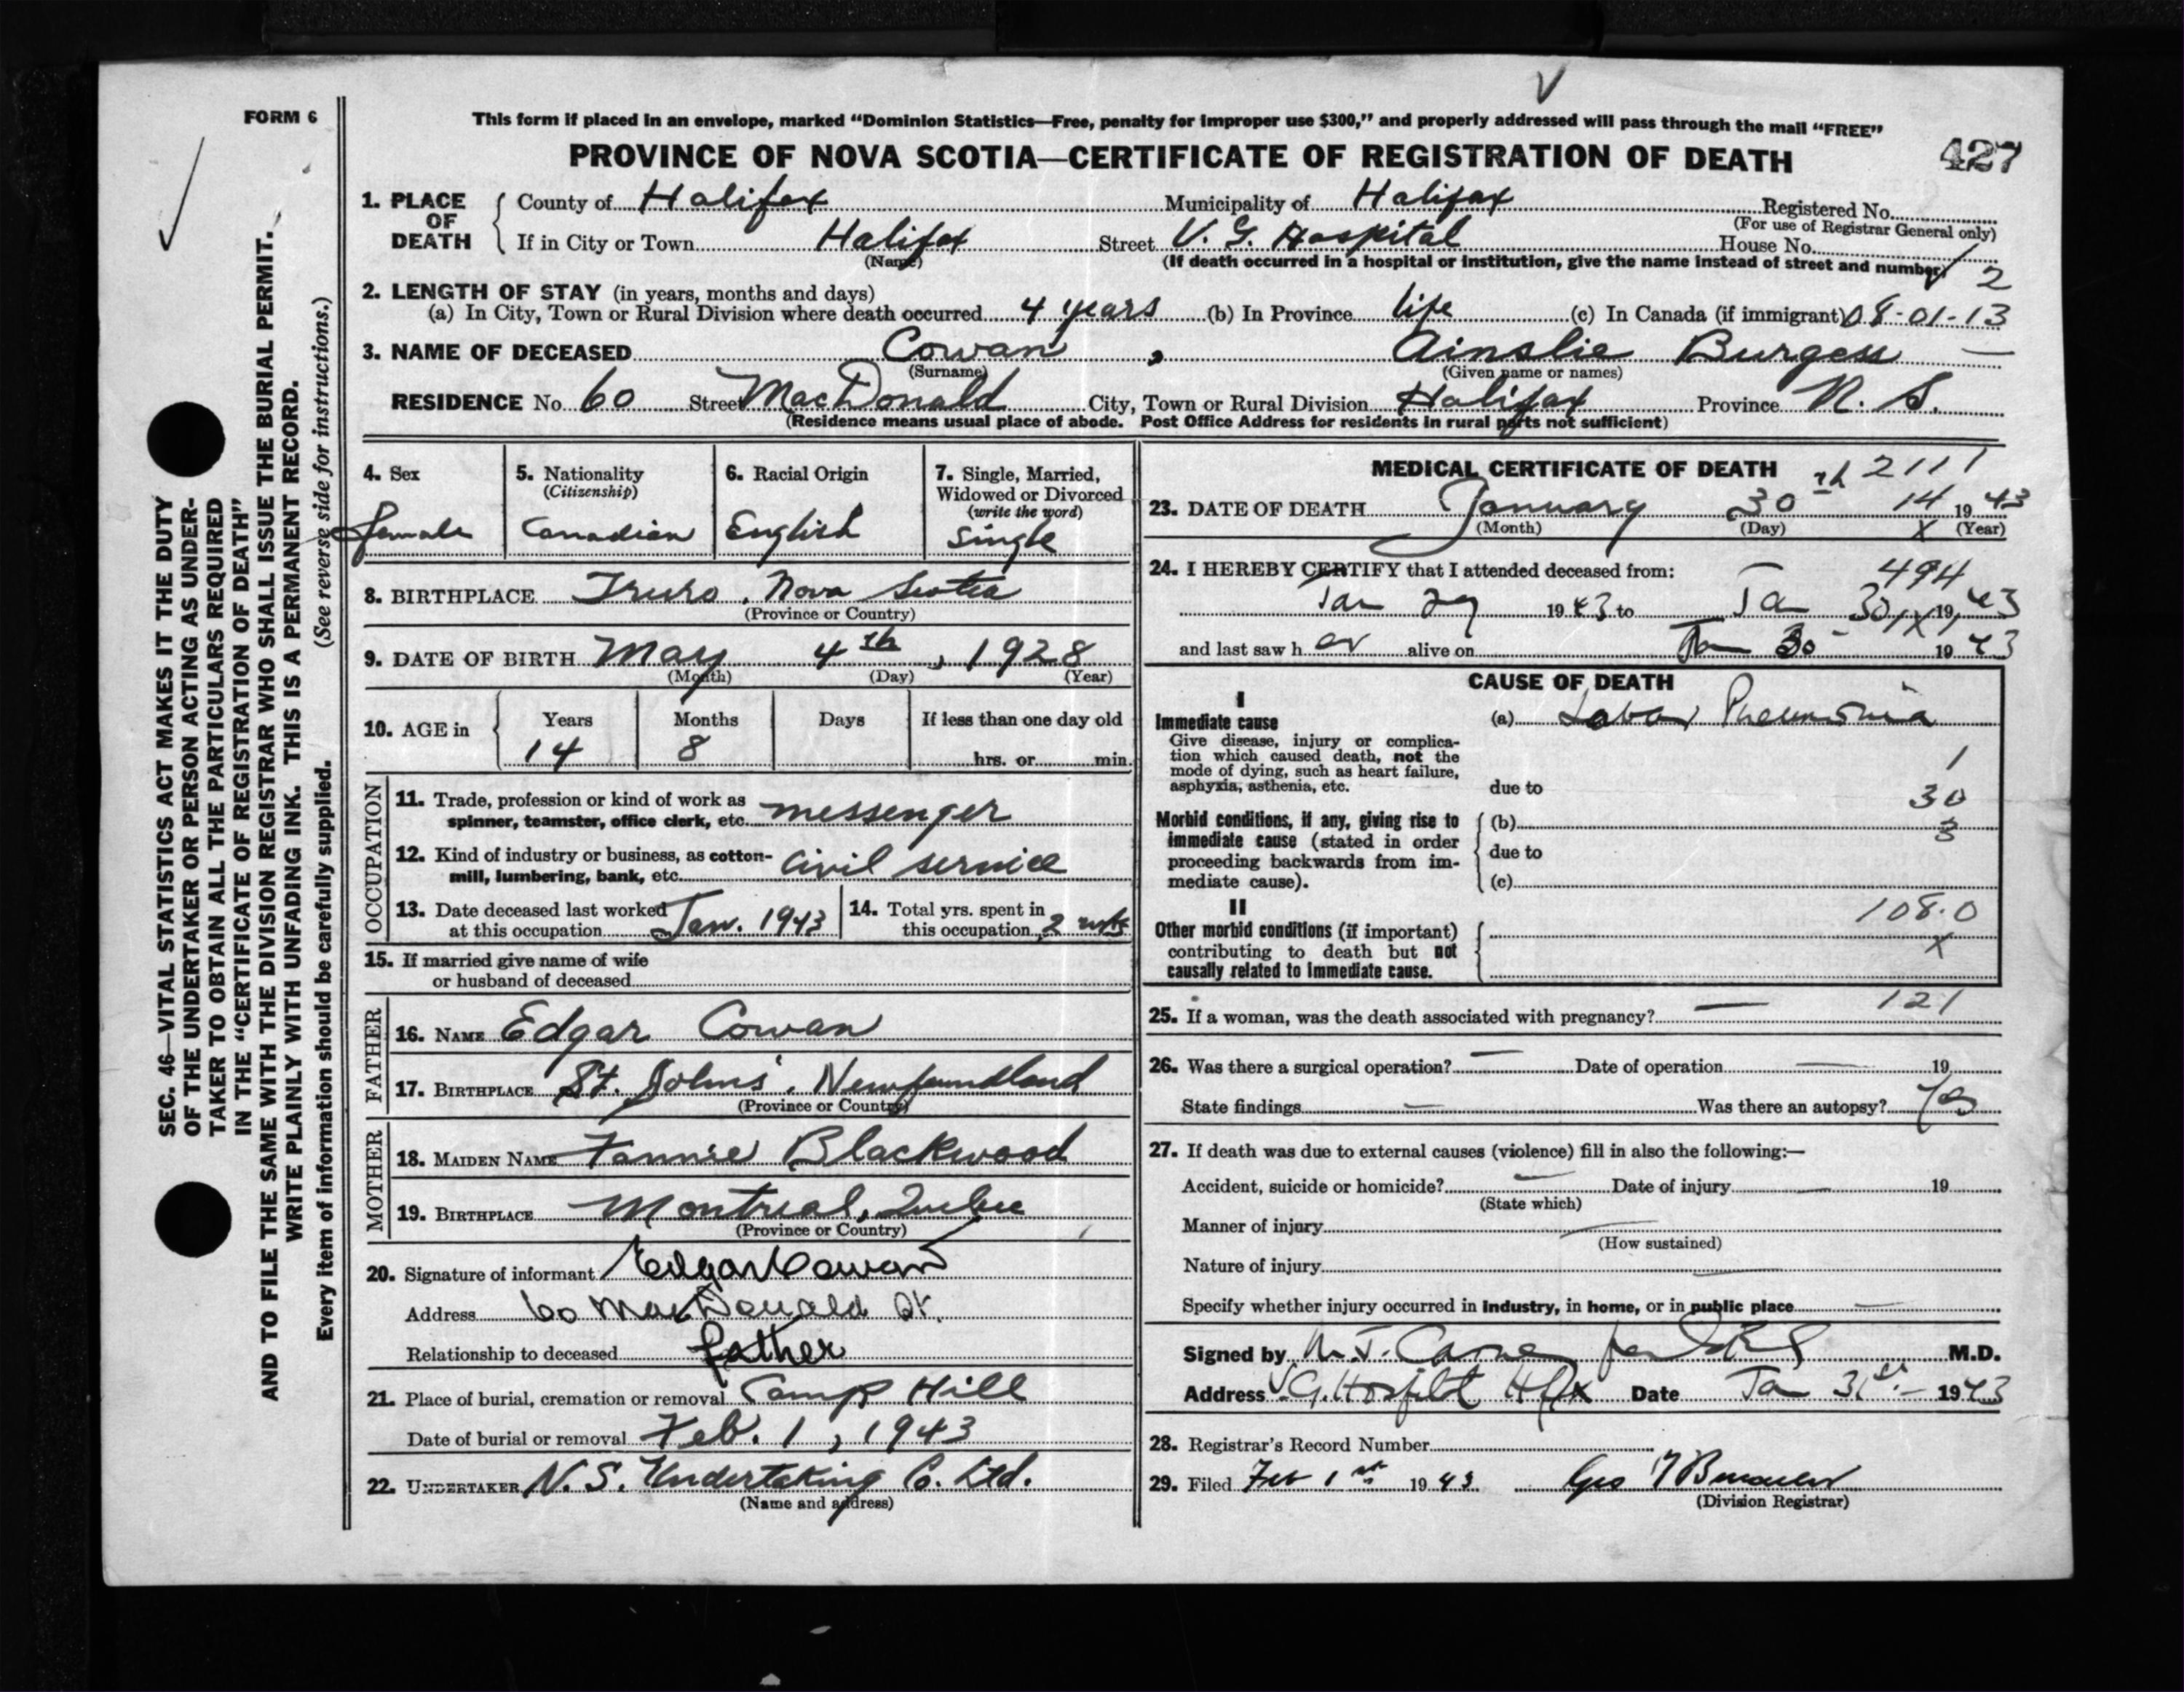 FORM 6
This form if placed in an envelope, marked “Dominion Statistics—Free, penalty for improper use $300,” and properly addressed will pass through the mail “FREE”
PROVINCE OF NOVA SCOTIA—CERTIFICATE OF REGISTRATION OF DEATH
427
1. PLACE OF DEATH
County of Halifax Municipality of Halifax Registered No.
(For use of Registrar General only)
If in City or Town Halifax Street V. G. Hospital House No.
(Name) (If death occurred in a hospital or institution, give the name instead of street and number)
2
2. LENGTH OF STAY (in years, months and days)
(a) In City, Town or Rural Division where death occurred 4 years (b) In Province life (c) In Canada (if immigrant) 08-01-13
3. NAME OF DECEASED Cowan , Ainslie Burgess —
(Surname) (Given name or names)
RESIDENCE No. 60 Street MacDonald City, Town or Rural Division Halifax Province N. S.
(Residence means usual place of abode. Post Office Address for residents in rural parts not sufficient)
4. Sex
female
5. Nationality
(Citizenship)
Canadian
6. Racial Origin
English
7. Single, Married,
Widowed or Divorced
(write the word)
Single
8. BIRTHPLACE Truro, Nova Scotia
(Province or Country)
9. DATE OF BIRTH May 4th, 1928
(Month) (Day) (Year)
10. AGE in
Years Months Days If less than one day old
14 8 hrs. or min.
OCCUPATION
11. Trade, profession or kind of work as
spinner, teamster, office clerk, etc. messenger
12. Kind of industry or business, as cotton-
mill, lumbering, bank, etc. Civil service
13. Date deceased last worked
at this occupation Jan. 1943
14. Total yrs. spent in
this occupation 2 wks
15. If married give name of wife
or husband of deceased
FATHER
16. NAME Edgar Cowan
17. BIRTHPLACE St. Johns', Newfoundland
(Province or Country)
MOTHER
18. MAIDEN NAME Fannie Blackwood
19. BIRTHPLACE Montreal, Quebec
(Province or Country)
20. Signature of informant Edgar Cowan
Address 60 MacDonald St.
Relationship to deceased father
21. Place of burial, cremation or removal Camp Hill
Date of burial or removal Feb. 1, 1943
22. UNDERTAKER N. S. Undertaking Co. Ltd.
(Name and address)
MEDICAL CERTIFICATE OF DEATH
2111
23. DATE OF DEATH January 30th 14 1943
(Month) (Day) X (Year)
24. I HEREBY CERTIFY that I attended deceased from:
494
Jan 29 1943 to Ja 30 1943
and last saw h er alive on Jan 30 - 1943
CAUSE OF DEATH
I
Immediate cause
Give disease, injury or complica-
tion which caused death, not the
mode of dying, such as heart failure,
asphyxia, asthenia, etc.
(a) Lobar Pneumonia
1
due to
30
Morbid conditions, if any, giving rise to
immediate cause (stated in order
proceeding backwards from im-
mediate cause).
(b)
3
due to
(c)
II
108.0
Other morbid conditions (if important)
contributing to death but not
causally related to immediate cause.
X
121
25. If a woman, was the death associated with pregnancy? —
26. Was there a surgical operation? — Date of operation — 19
State findings — Was there an autopsy? Yes
27. If death was due to external causes (violence) fill in also the following:—
Accident, suicide or homicide? — Date of injury — 19
(State which)
Manner of injury —
(How sustained)
Nature of injury —
Specify whether injury occurred in industry, in home, or in public place —
Signed by M.D.
Address V.G. Hospital Hfx Date Ja 31st - 1943
28. Registrar's Record Number
29. Filed Feb 1st 1943 Geo
(Division Registrar)
SEC. 46—VITAL STATISTICS ACT MAKES IT THE DUTY
OF THE UNDERTAKER OR PERSON ACTING AS UNDER-
TAKER TO OBTAIN ALL THE PARTICULARS REQUIRED
IN THE “CERTIFICATE OF REGISTRATION OF DEATH”
AND TO FILE THE SAME WITH THE DIVISION REGISTRAR WHO SHALL ISSUE THE BURIAL PERMIT.
WRITE PLAINLY WITH UNFADING INK. THIS IS A PERMANENT RECORD.
Every item of information should be carefully supplied. (See reverse side for instructions.)